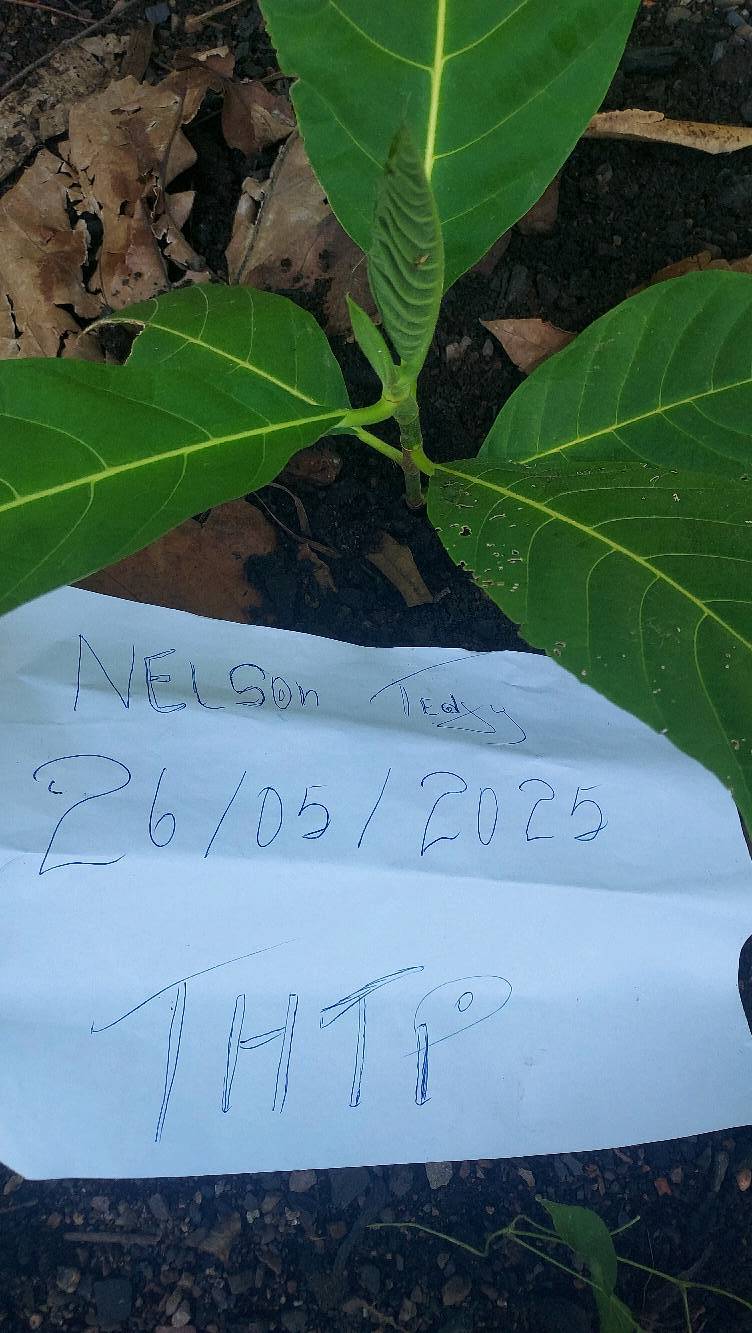 NELSon Teddy
26/05/2025
THTP